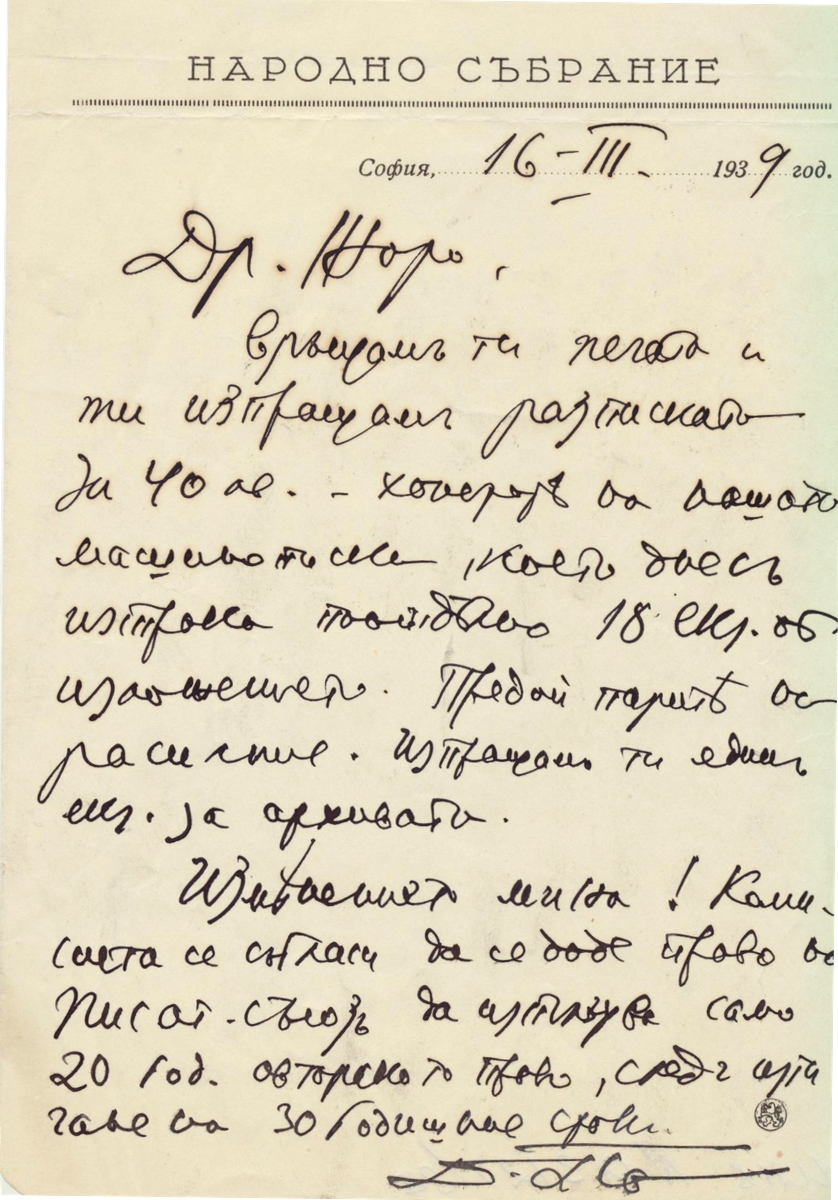 НАРОДНО СЪБРАНИЕ
София, 16-III. 1939 год.
Др. Жоро,
връщамъ ти печата и
ти изпращамъ разписката
за 40 лв. - хонораръ на нашата
машинописка, която днесъ
изтрака 18 екз. отъ
изложението. Предай паритѣ на
. Изпращамъ ти единъ
екз. за архивата.
Изменението мина! Коми-
сията се съгласи да се даде право на
Писат. съюзъ да изпъзва само
20 год. авторското право, следъ изти
чане на 30 годишние срокъ.